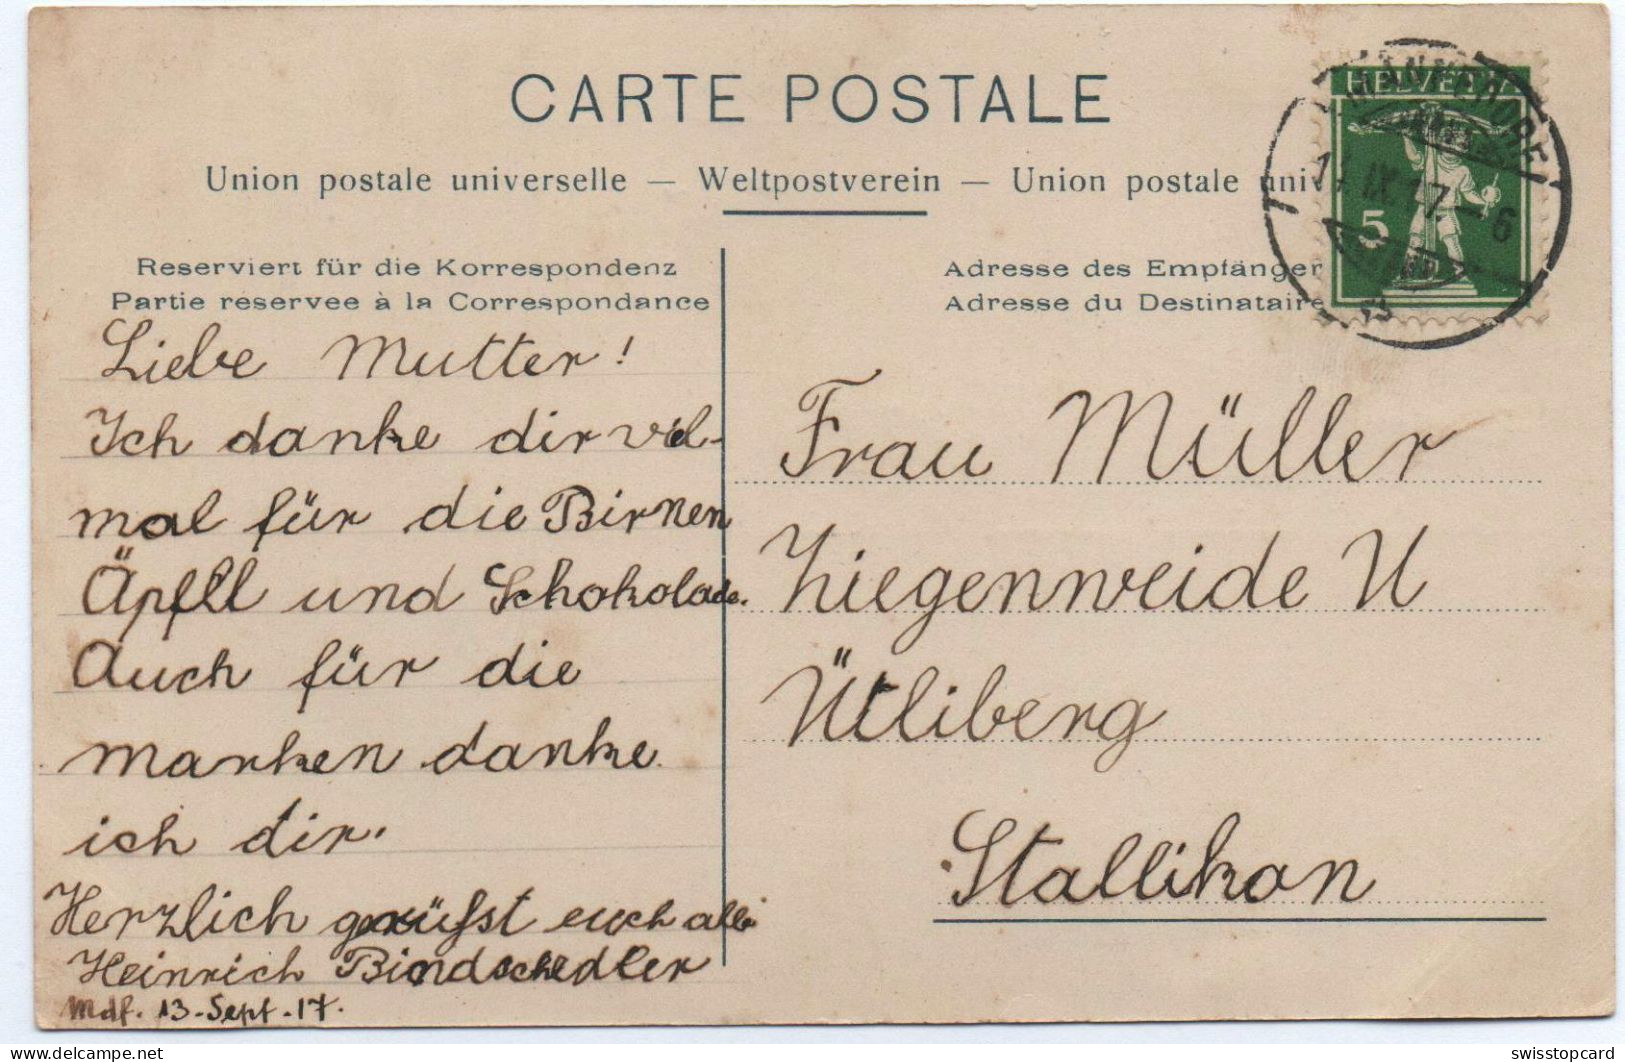 CARTE POSTALE
Union postale universelle — Weltpostverein — Union postale univ
Reserviert für die Korrespondenz
Partie reservee à la Correspondance
Liebe Mutter!
Ich danke dir viel-
mal für die Birnen
Äpfel und Schokolade.
Auch für die
Marken danke
ich dir.
Herzlich grüsst euch alle
Heinrich Bindschedler
Mdf. 13. Sept. 17.
Adresse des Empfänger
Adresse du Destinataire
HELVETIA
5
MÄNNEDORF
14.IX.17.–6
Frau Müller
Ziegenweide U
Ütliberg
Stallikon
delcampe.net
swisstopcard